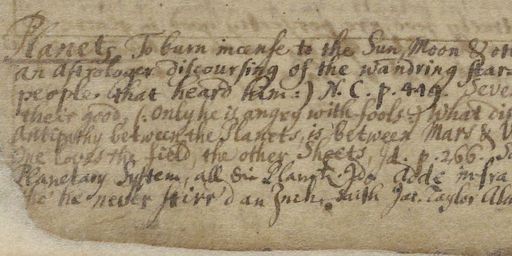 Planets To burn incense to the Sun, Moon & ot
an Astrologer discoursing of the wandring stars
people that heard him:) N. C. p. 449. Seve
their good, (: Only he is angry with fools:) What dis
antipathy between the Planets, is between Mars & V
One loves the field, the other Sheets, p. 266. 
Planetary System, all Adde infra
he never stirr'd an Inch, saith Jac. Taylor Alm